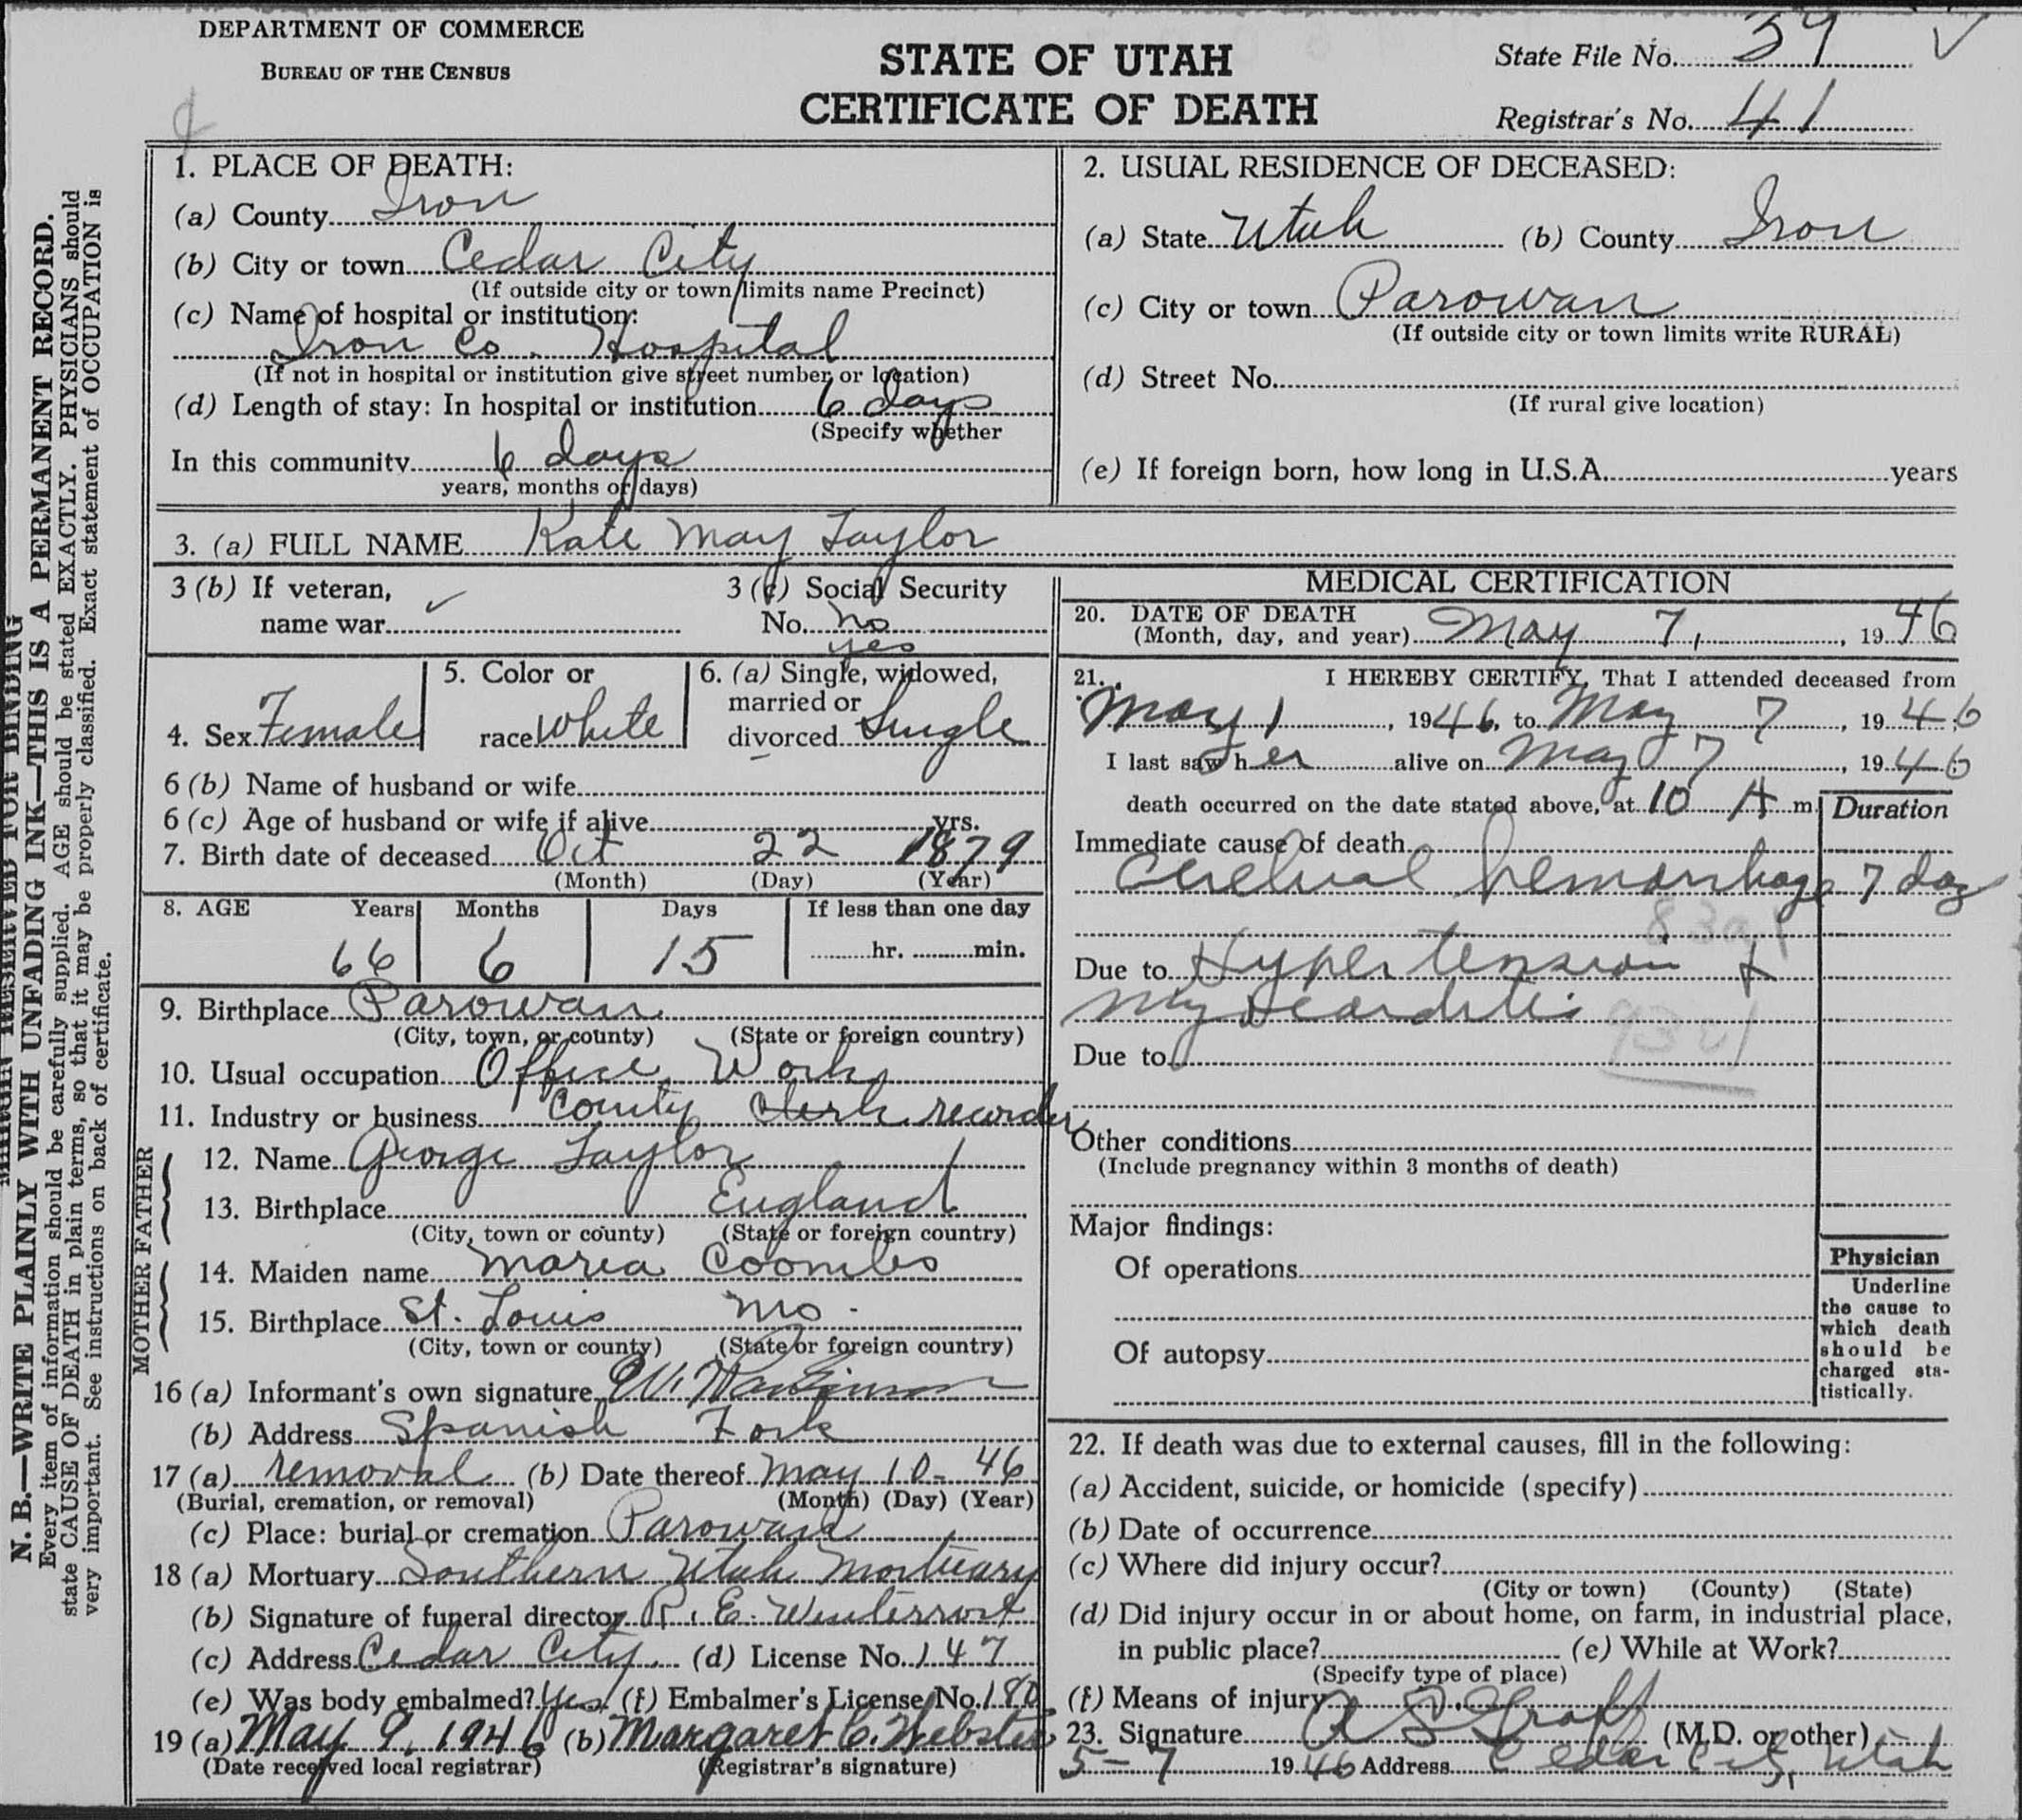 DEPARTMENT OF COMMERCE
BUREAU OF THE CENSUS
STATE OF UTAH
CERTIFICATE OF DEATH
State File No. 39
Registrar's No. 41
N. B.—WRITE PLAINLY WITH UNFADING INK—THIS IS A PERMANENT RECORD.
Every item of information should be carefully supplied. AGE should be stated EXACTLY. PHYSICIANS should
state CAUSE OF DEATH in plain terms, so that it may be properly classified. Exact statement of OCCUPATION is
very important. See instructions on back of certificate.
1. PLACE OF DEATH:
(a) County Iron
(b) City or town Cedar City
(If outside city or town limits name Precinct)
(c) Name of hospital or institution:
Iron Co. Hospital
(If not in hospital or institution give street number or location)
(d) Length of stay: In hospital or institution 6 days
(Specify whether
In this community 6 days
years, months or days)
2. USUAL RESIDENCE OF DECEASED:
(a) State Utah (b) County Iron
(c) City or town Parowan
(If outside city or town limits write RURAL)
(d) Street No.
(If rural give location)
(e) If foreign born, how long in U.S.A. years
3. (a) FULL NAME Kate May Taylor
3 (b) If veteran,
name war
3 (c) Social Security
No. no
yes
4. Sex Female
5. Color or
race White
6. (a) Single, widowed,
married or
divorced Single
6 (b) Name of husband or wife
6 (c) Age of husband or wife if alive yrs.
7. Birth date of deceased Oct 22 1879
(Month) (Day) (Year)
8. AGE Years Months Days If less than one day
66 6 15 hr. min.
9. Birthplace Parowan
(City, town, or county) (State or foreign country)
10. Usual occupation Office Work
11. Industry or business County Clerk recorder
FATHER
12. Name George Taylor
13. Birthplace England
(City, town or county) (State or foreign country)
MOTHER
14. Maiden name Maria Coombs
15. Birthplace St. Louis Mo.
(City, town or county) (State or foreign country)
16 (a) Informant's own signature
(b) Address Spanish Fork
17 (a) removal (b) Date thereof May 10- 46
(Burial, cremation, or removal) (Month) (Day) (Year)
(c) Place: burial or cremation Parowan
18 (a) Mortuary Southern Utah Mortuary
(b) Signature of funeral director R. E. Winterrose
(c) Address Cedar City (d) License No. 147
(e) Was body embalmed? Yes (f) Embalmer's License No. 180
19 (a) May 9, 1946 (b) Margaret C. Webster
(Date received local registrar) (Registrar's signature)
MEDICAL CERTIFICATION
20. DATE OF DEATH
(Month, day, and year) May 7, , 1946
21. I HEREBY CERTIFY, That I attended deceased from
May 1, 1946, to May 7, 1946;
I last saw her alive on May 7, 1946;
death occurred on the date stated above, at 10 A m.
Duration
Immediate cause of death
Cerebral hemorrhage 7 day
83a
Due to Hypertension &
Myocarditis
Due to
Other conditions
(Include pregnancy within 3 months of death)
Major findings:
Of operations
Of autopsy
Physician
Underline
the cause to
which death
should be
charged sta-
tistically.
22. If death was due to external causes, fill in the following:
(a) Accident, suicide, or homicide (specify)
(b) Date of occurrence
(c) Where did injury occur?
(City or town) (County) (State)
(d) Did injury occur in or about home, on farm, in industrial place,
in public place? (e) While at Work?
(Specify type of place)
(f) Means of injury
23. Signature A L Graff (M.D. or other)
5-7 1946 Address Cedar City, Utah